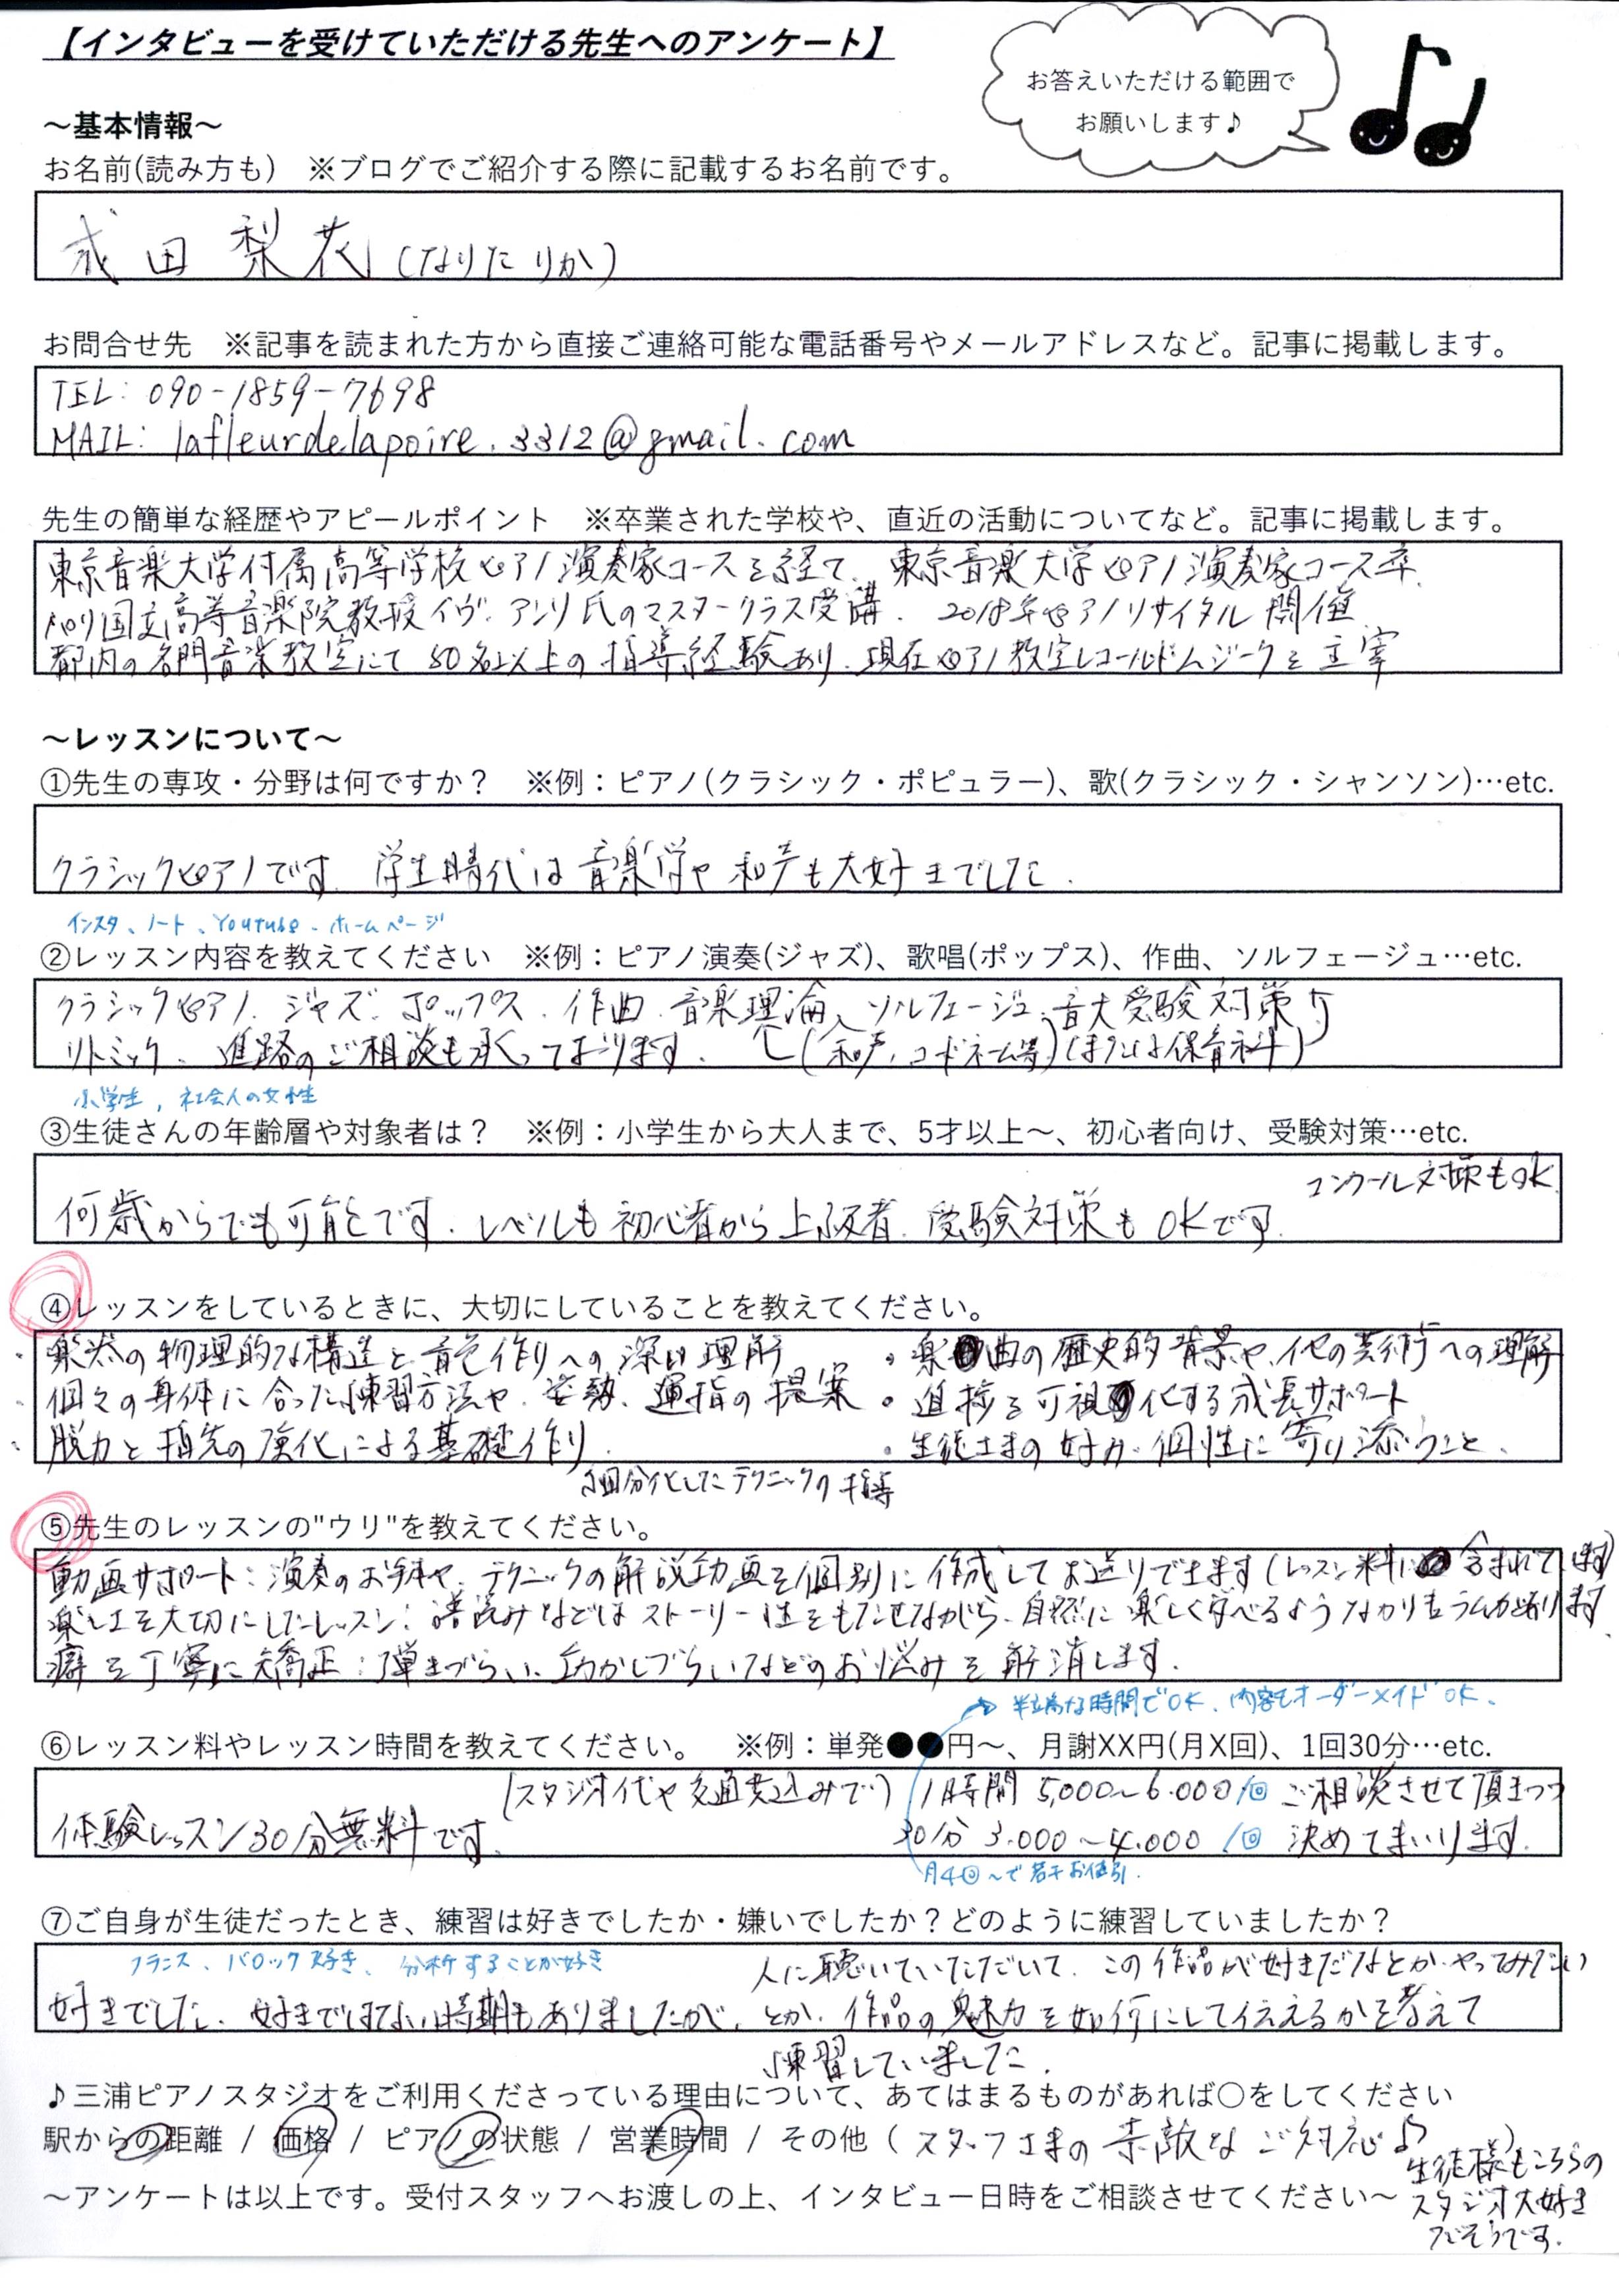 【インタビューを受けていただける先生へのアンケート】
お答えいただける範囲で
お願いします♪
～基本情報～
お名前(読み方も)　※ブログでご紹介する際に記載するお名前です。
成田 梨花 (なりた りか)
お問合せ先　※記事を読まれた方から直接ご連絡可能な電話番号やメールアドレスなど。記事に掲載します。
TEL: 090-1859-7698
MAIL: lafleurdelapoire.3312@gmail.com
先生の簡単な経歴やアピールポイント　※卒業された学校や、直近の活動についてなど。記事に掲載します。
東京音楽大学付属高等学校ピアノ演奏家コースを経て、東京音楽大学ピアノ演奏家コース卒.
パリ国立高等音楽院教授イヴ・アンリ氏のマスタークラス受講. 2018年ピアノリサイタル開催
都内の名門音楽教室にて50名以上の指導経験あり. 現在ピアノ教室レコールドムジークを主宰
～レッスンについて～
①先生の専攻・分野は何ですか？　※例：ピアノ(クラシック・ポピュラー)、歌(クラシック・シャンソン)…etc.
クラシックピアノです. 学生時代は音楽学や和声も大好きでした.
インスタ、ノート、Youtube、ホームページ
②レッスン内容を教えてください　※例：ピアノ演奏(ジャズ)、歌唱(ポップス)、作曲、ソルフェージュ…etc.
クラシックピアノ. ジャズ. ポップス. 作曲. 音楽理論、ソルフェージュ. 音大受験対策
リトミック、進路のご相談も承っております. (和声. コードネーム等) (または保育科)
小学生, 社会人の女性
③生徒さんの年齢層や対象者は？　※例：小学生から大人まで、5才以上～、初心者向け、受験対策…etc.
コンクール対策もOK.
何歳からでも可能です. レベルも初心者から上級者. 受験対策もOKです.
④レッスンをしているときに、大切にしていることを教えてください。
・楽器の物理的な構造と音色作りへの深い理解　・楽曲の歴史的背景や、他の芸術への理解
・個々の身体に合った練習方法や、姿勢、運指の提案　・進捗を可視化する成長サポート
・脱力と指先の強化による基礎作り.　・生徒さまの好み、個性に寄り添うこと.
細分化したテクニックの指導
⑤先生のレッスンの"ウリ"を教えてください。
動画サポート：演奏のお手本や、テクニックの解説動画を個別に作成してお送りできます(レッスン料に含まれています)
楽しさを大切にしたレッスン：譜読みなどはストーリー性をもたせながら、自然に楽しく学べるようなカリキュラムがあります.
癖を丁寧に矯正：弾きづらい、動かしづらいなどのお悩みを解消します.
半端な時間でOK. 内容もオーダーメイドOK.
⑥レッスン料やレッスン時間を教えてください。　※例：単発●●円～、月謝XX円(月X回)、1回30分…etc.
(スタジオ代や交通費込みで) 1時間 5,000～6.000/回 ご相談させて頂きつつ
体験レッスン30分無料です. 30分 3.000～4.000 /回 決めてまいります.
月4回～で若干お値引.
⑦ご自身が生徒だったとき、練習は好きでしたか・嫌いでしたか？どのように練習していましたか？
フランス、バロック好き、分析することが好き
人に聴いていただいて、この作品が好きだなとか、やってみたい
好きでした、好きではない時期もありましたが、とか、作品の魅力を如何にして伝えるかを考えて
練習していました.
♪三浦ピアノスタジオをご利用くださっている理由について、あてはまるものがあれば○をしてください
駅からの距離 / 価格 / ピアノの状態 / 営業時間 / その他（スタッフさまの素敵なご対応♪）
生徒様もこちらの
～アンケートは以上です。受付スタッフへお渡しの上、インタビュー日時をご相談させてください～
スタジオ大好き
だそうです.